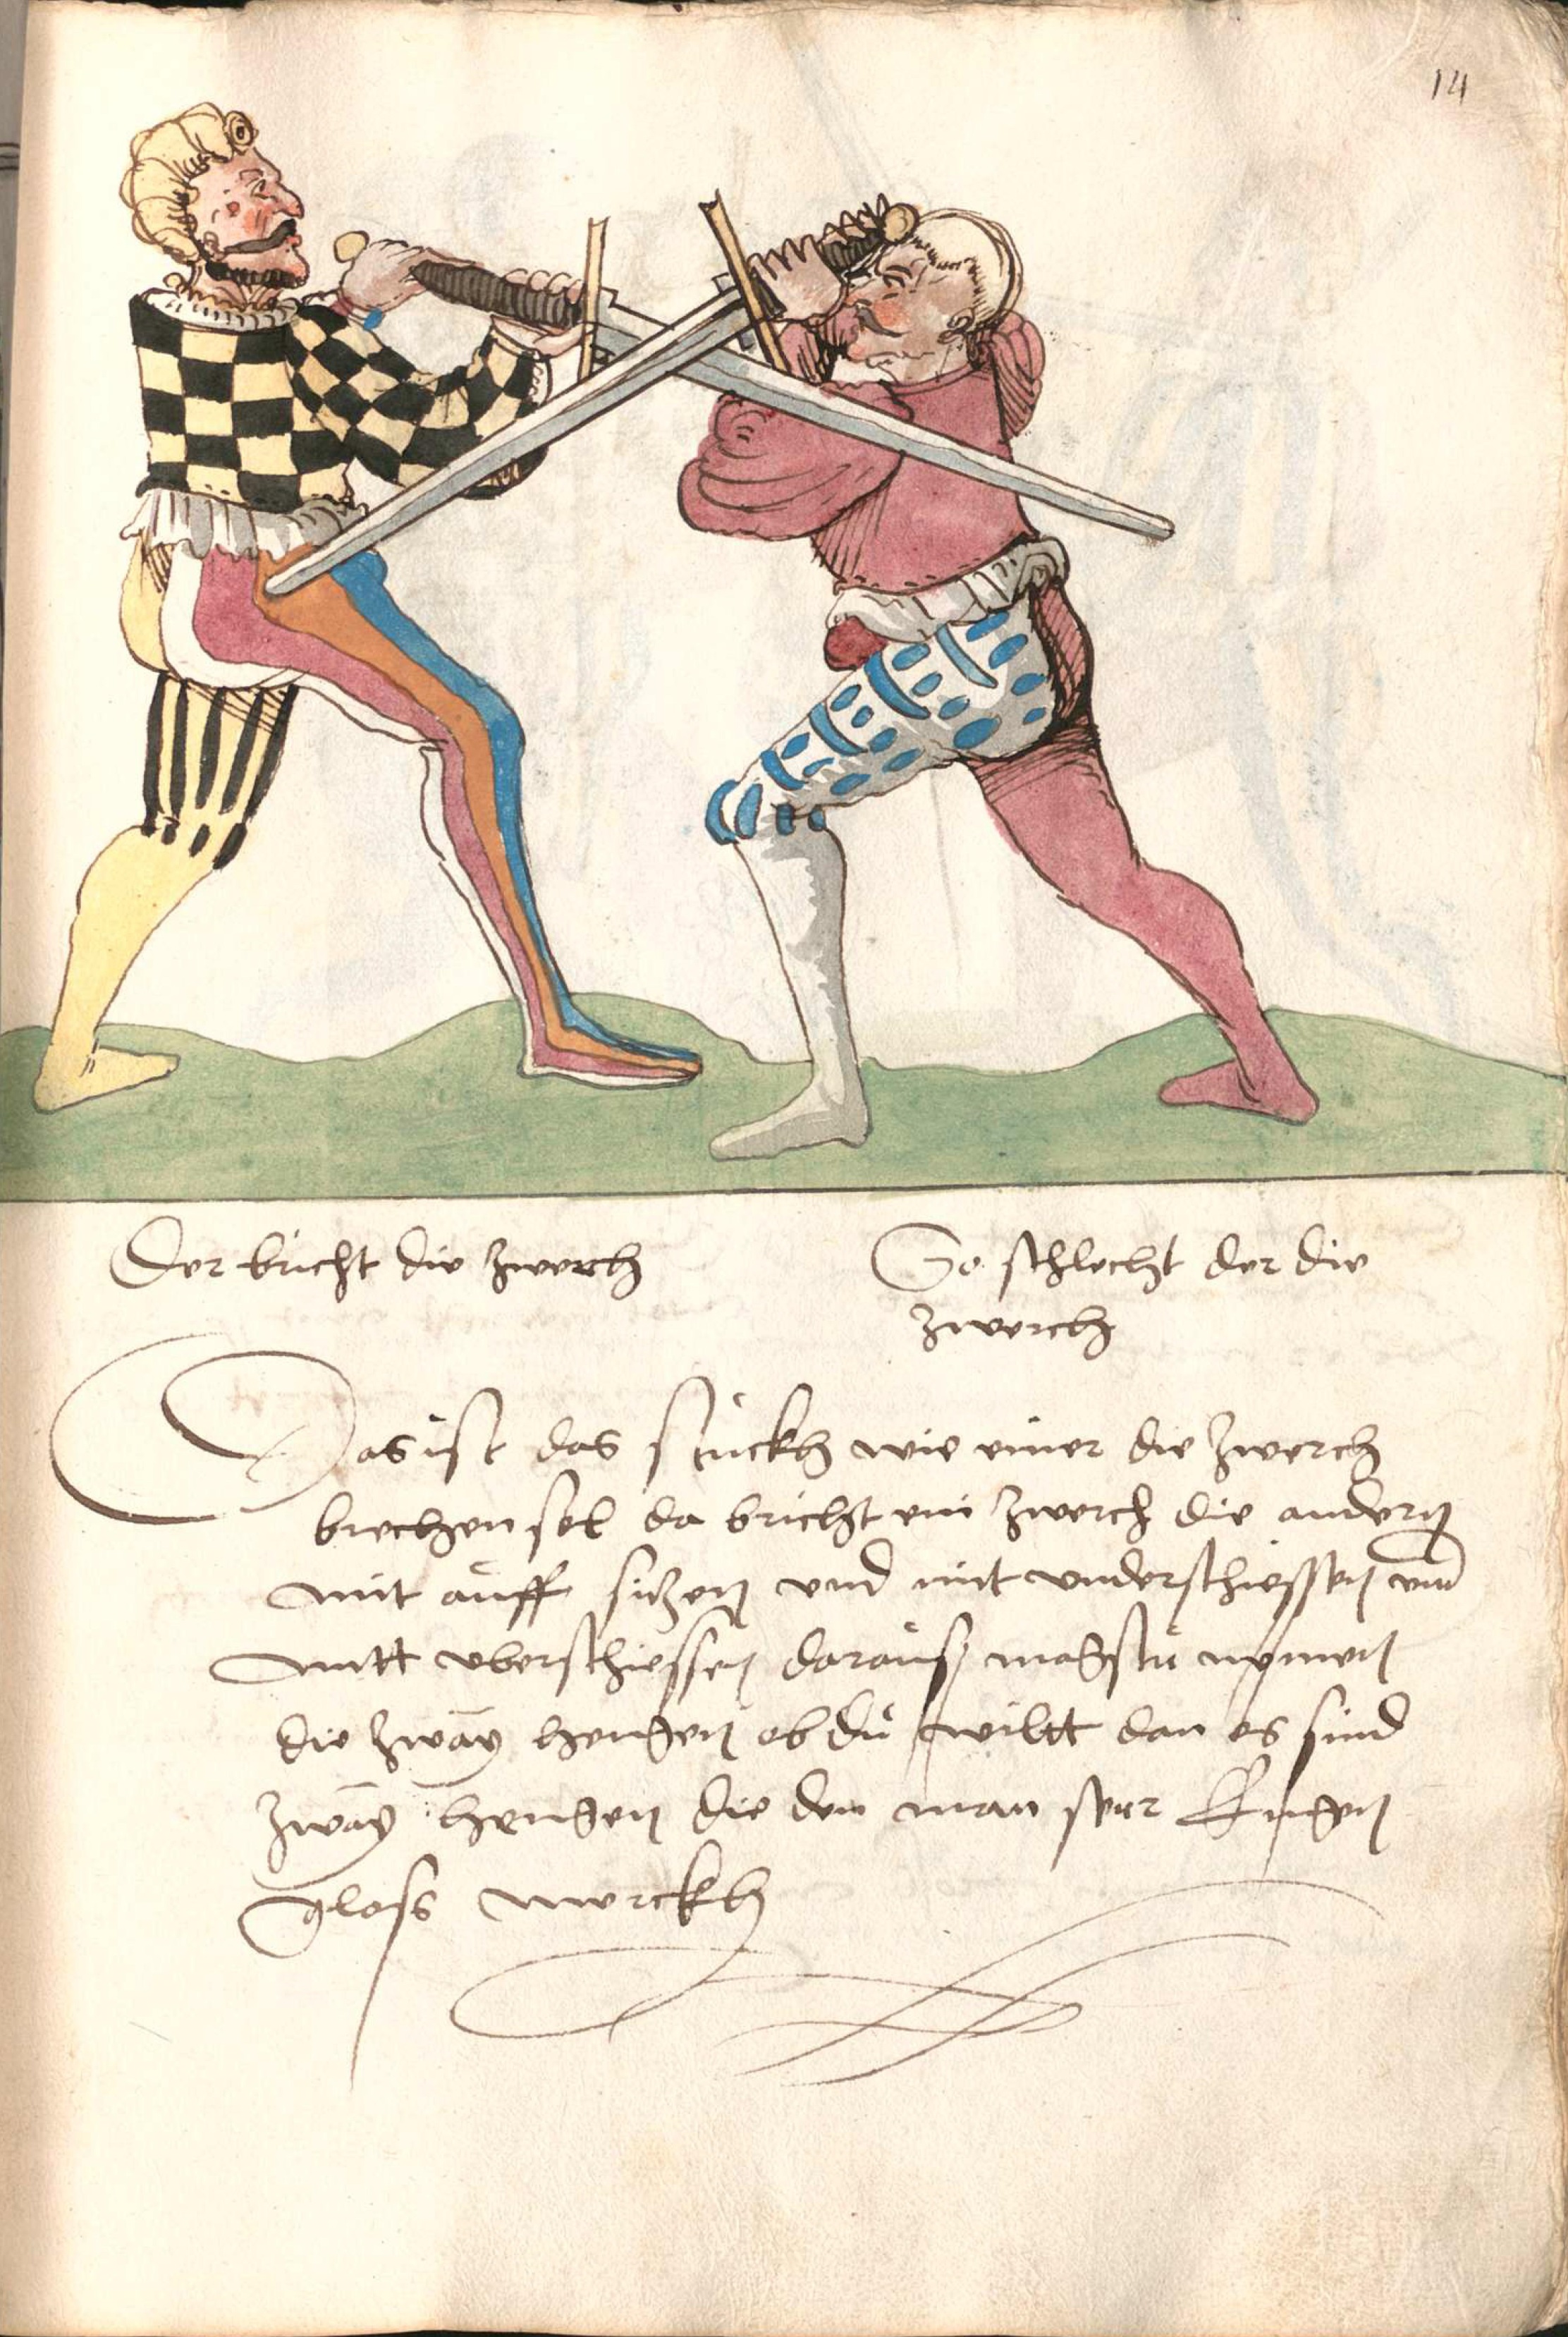 14
Der bricht die zwerch
So schlecht der die
zwerch
Das ist das stückh wie einer die zwerch
brechen sol da bricht ein zwerch die andern
mit auff sitzen vnd mit vnderschiessen vnd
mitt vberschiessen darauß magstu nemen
die zway hengen ob du wiltt dan es sind
zway hengen die den man ser
gloss merckh